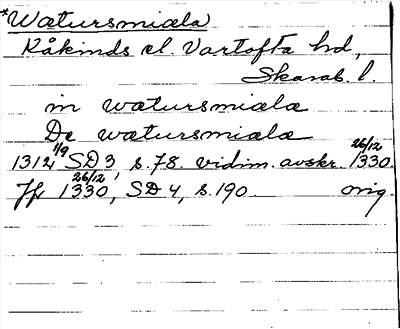 *Watursmiæla
Kåkinds el. Vartofta hd,
Skarab. l.
in watursmiæla
De watursmiæla
1312 1/9 SD 3, s. 78. vidim. avskr. 26/12 1330.
Jfr 26/12 1330, SD 4, s. 190. orig.